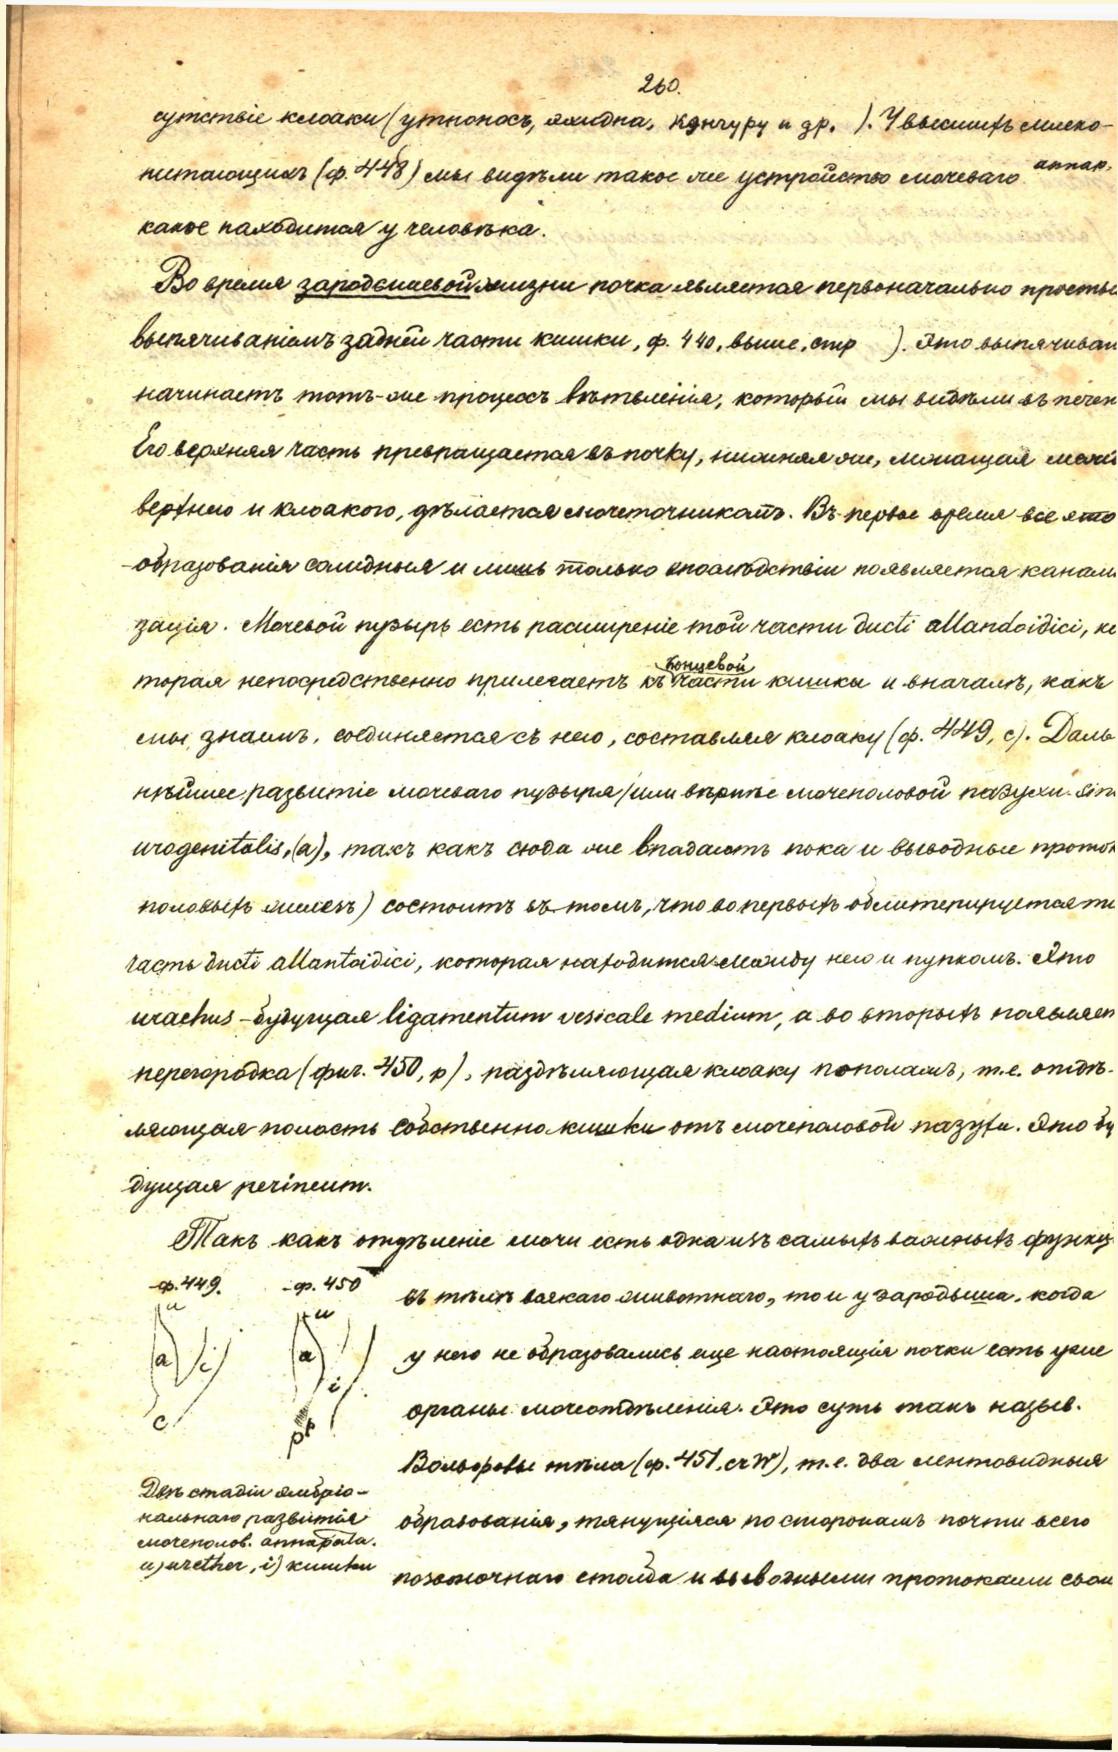 260.
сутствіе клоаки (утконосъ, эхидна, кэнгуру и др. ). У высшихъ млеко-
питающихъ (ф. 448) мы видѣли такое же устройство мочеваго аппар.
какое находится у человѣка.
Во время зародышевой жизни почка является первоначально просты
выпячиваніемъ задней части кишки, ф. 440, выше, стр ). Это выпячиван
начинаетъ тотъ-же процессъ вѣтвленія, который мы видѣли въ печен
Его верхняя часть превращается въ почку, нижняя же, лежащая межд
верхнею и клоакою, дѣлается мочеточникомъ. Въ первое время все это
образованія солидныя и лишь только впослѣдствіи появляется канали
зація. Мочевой пузырь есть расширеніе той части ducti allandoidici, ко
торая непосредственно прилегаетъ къ концевой части кишки и вначалѣ, какъ
мы знаемъ, соединяется съ нею, составляя клоаку (ф. 449, с). Даль
нѣйшее развитіе мочеваго пузыря (или вѣрнѣе мочеполовой пазухи sin
urogenitalis, (a), такъ какъ сюда же впадаютъ пока и выводные проток
половыхъ железъ) состоитъ въ томъ, что во первыхъ облитерируется та
часть ducti allantoidici, которая находится между нею и пупкомъ. Это
urachus - будущая ligamentum vesicale medium, а во вторыхъ появляет
перегородка (фиг. 450, р), раздѣляющая клоаку пополамъ, т.е. отдѣ-
ляющая полость собственно кишки отъ мочеполовой пазухи. Это бу
дущая perineum.
Такъ какъ отдѣленіе мочи есть одна изъ самыхъ важныхъ функц
въ тѣлѣ всякаго животнаго, то и у зародыша, когда
у него не образовались еще настоящія почки есть уже
органы мочеотдѣленія. Это суть такъ назыв.
Вольфовы тѣла (ф. 451, сч W), т.е. два лентовидныя
образованія, тянущіяся по сторонамъ почти всего
позвоночнаго столба и выводными протоками свои
ф. 449. ф. 450
u u
a i a i
c p
Двѣ стадіи эмбріо-
нальнаго развитія
мочеполов. аппарата.
u) urether, i) кишки